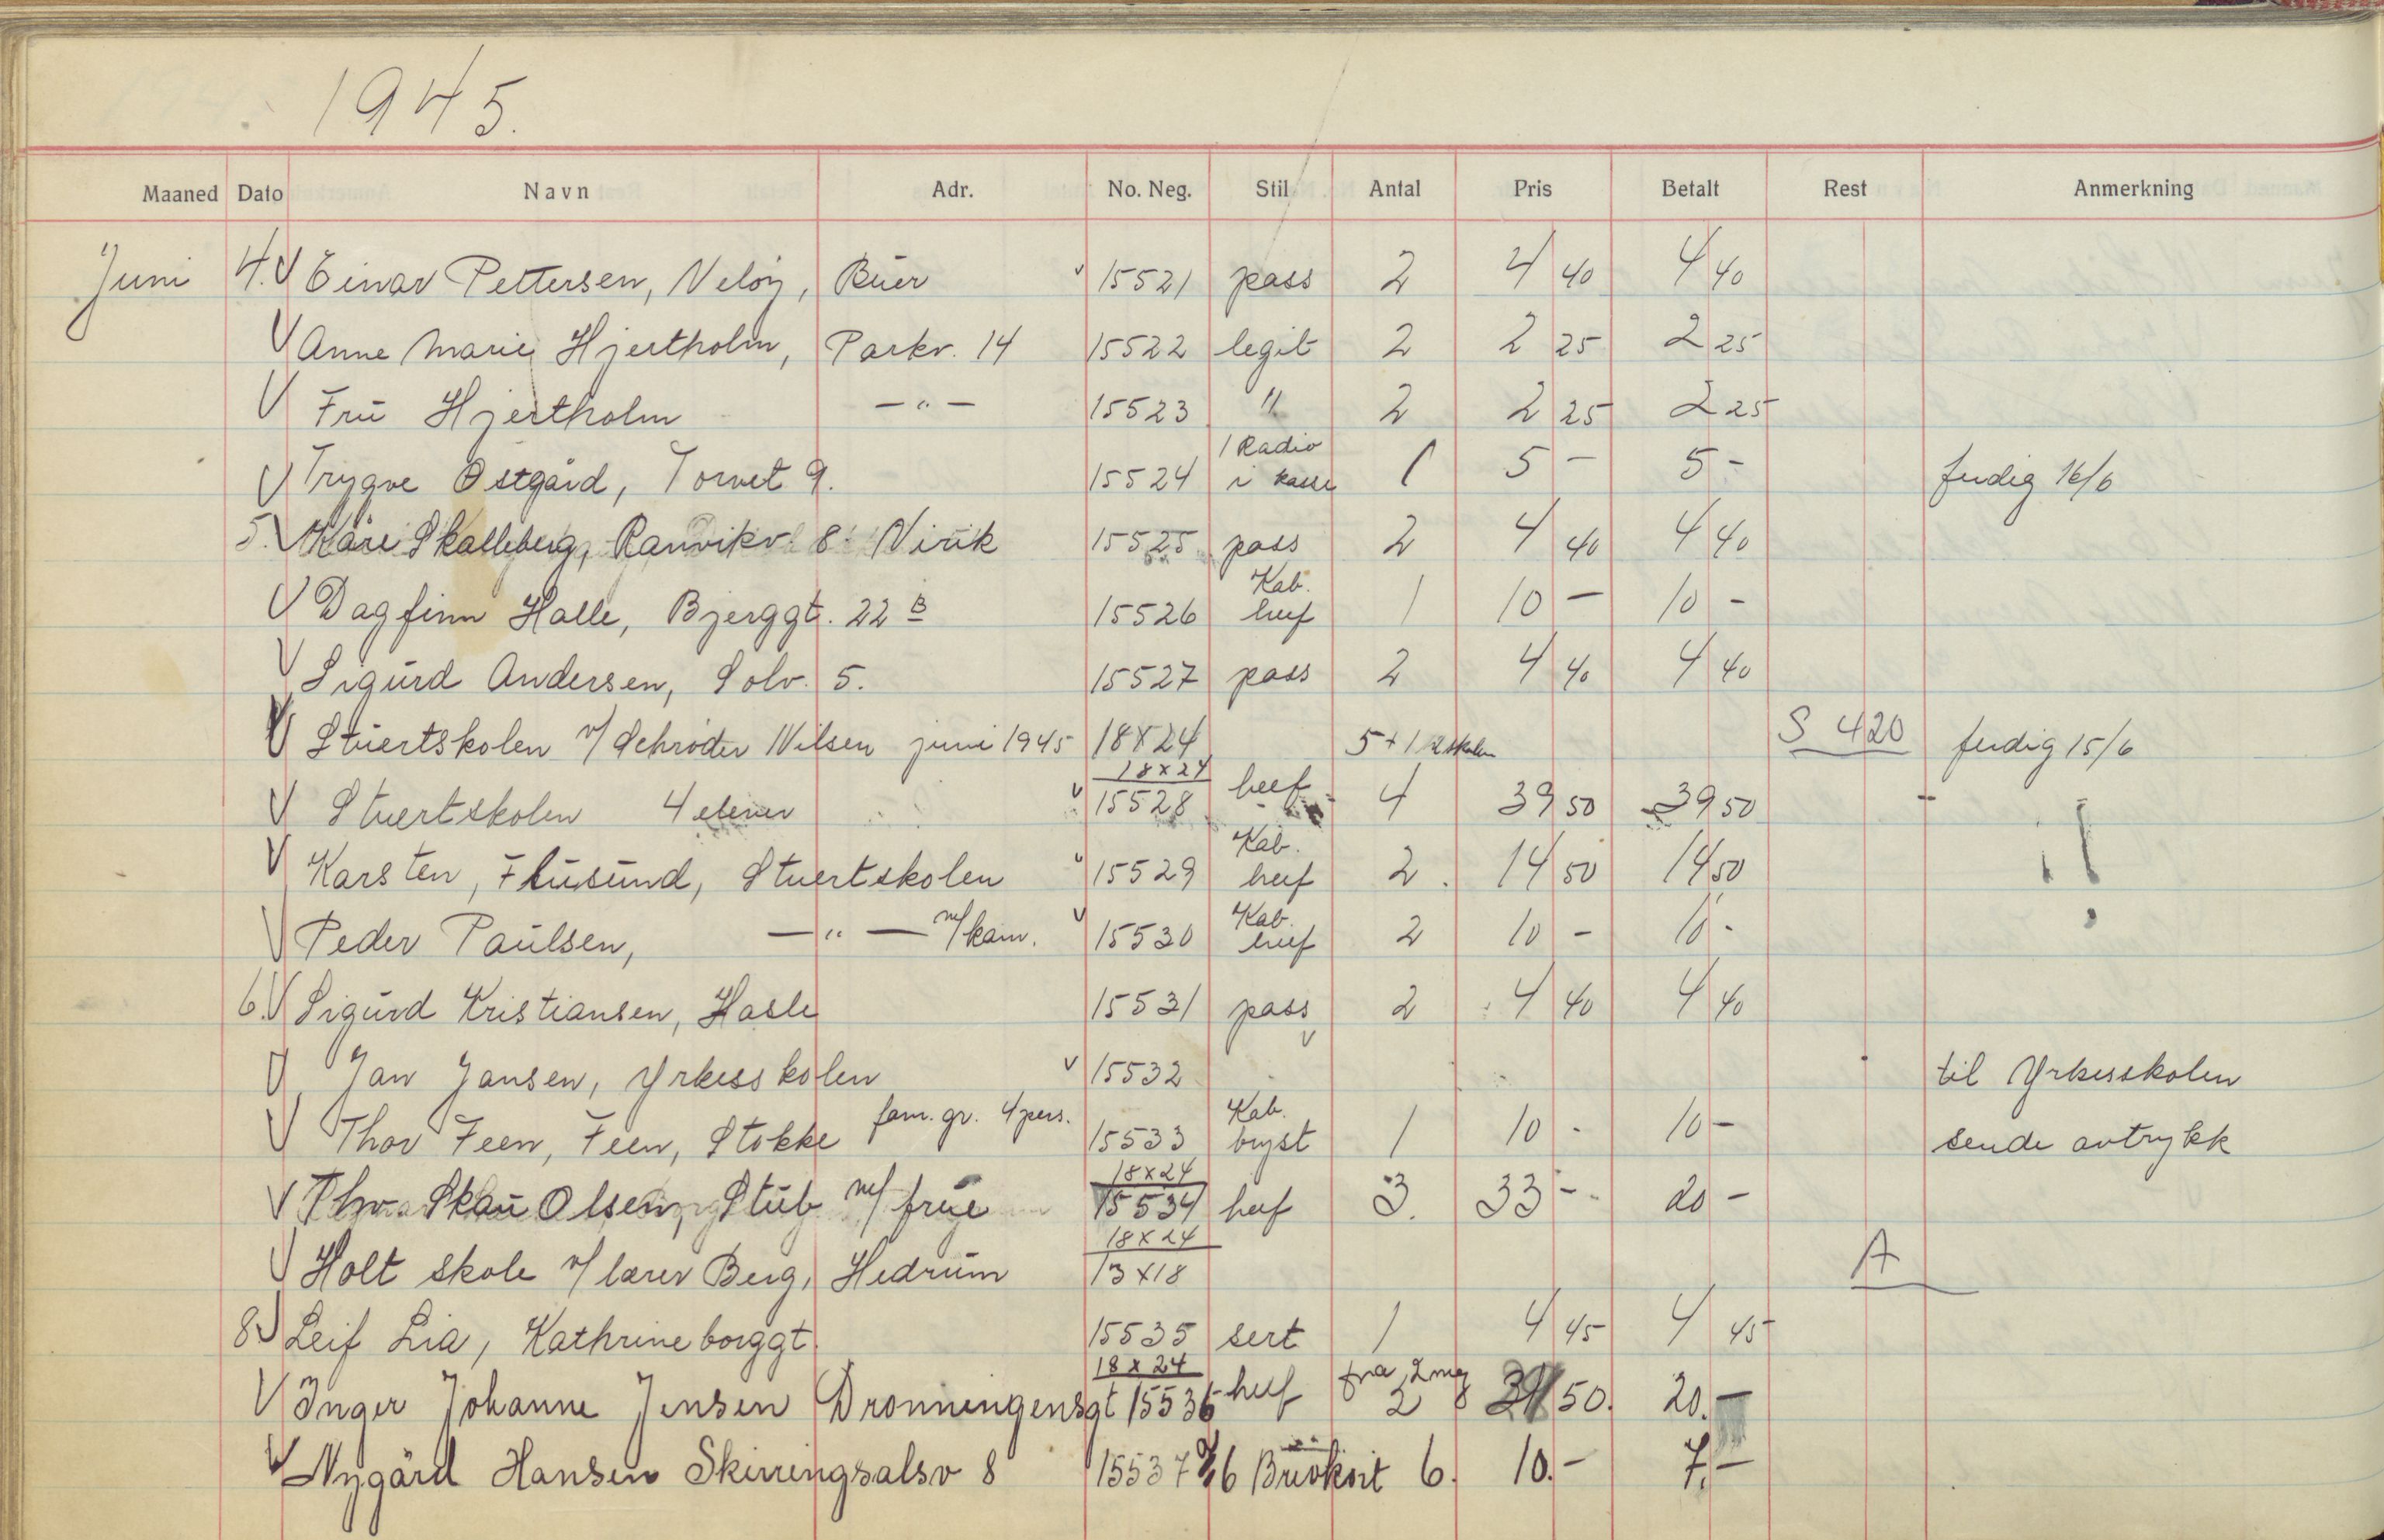 1945.
Maaned Dato Navn Adr. No. Neg. Stil Antal Pris Betalt Rest Anmerkning
Juni 4. V Einar Pettersen, Veløy, Buer v 15521 pass 2 4 40 4 40
V Anne Marie Hjertholm, Parkv. 14 15522 legit 2 2 25 2 25
V Frü Hjertholm — " — 15523 " 2 2 25 2 25
V Trygve Østgård, Torvet 9. 15524 1 Radio i kasse 1 5 - 5 - ferdig 16/6
5. V Kåre Skalleberg, Ranvikv. 8. Virik 15525 pass 2 4 40 4 40
V Dagfinn Halle, Bjerggt. 22 B 15526 Kab. heef 1 10 - 10 -
V Sigurd Andersen, Solv. 5. 15527 pass 2 4 40 4 40
V Stuertskolen v/ Schrøder Nilsen juni 1945 18x24 5 + 1 S 420 ferdig 15/6
V Stuertskolen 4 elever v 18x24 15528 heef 4 39 50 39 50
V Karsten, Flusund, Stuertskolen v 15529 Kab. heef 2 14 50 14 50
V Peder Paulsen, — " — m/ kam. v 15530 Kab. heef 2 10 - 10 -
6. V Sigurd Kristiansen, Hasle 15531 pass 2 4 40 4 40
V Jan Jansen, Yrkesskolen v 15532 v til Yrkesskolen
V Thor Feen, Feen, Stokke fam. gr. 4 pers. 15533 Kab. bryst 1 10 - 10 - sende avtrykk
V Thv. Skau Olsen, Stub m/ frue 18x24 15534 heef 3. 33 - 20 -
V Holt skole v/ lærer Berg, Hedrum 18x24 13x18 A
8. V Leif Lia, Kathrineborggt. 15535 sert 1 4 45 4 45
V Inger Johanne Jensen Dronningensgt 18x24 15536 heef fra 2 neg 2 50. 20. -
V Nygård Hansen Skirringsalsv 8 15537 6 Brevkort 6. 10. - 7. -